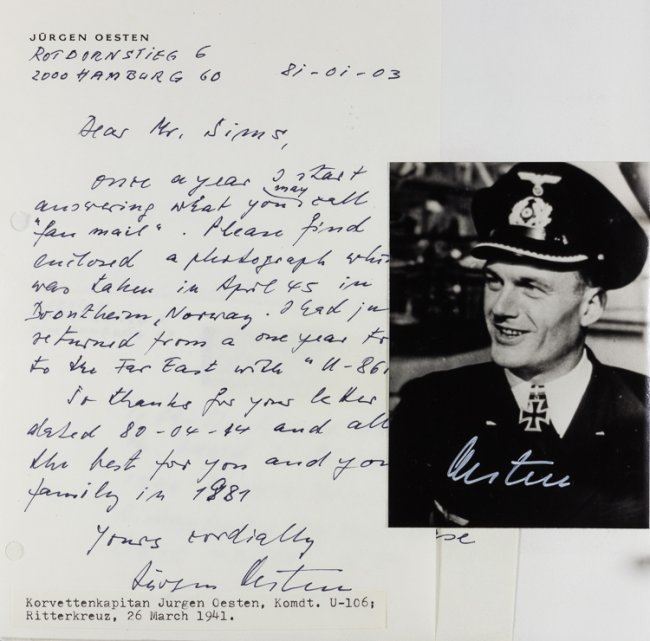 JÜRGEN OESTEN
ROTDORNSTIEG 6
2000 HAMBURG 60 81-01-03
Dear Mr. Sims,
once a year I start
answering what you may call
"fan mail". Please find
enclosed a photograph whi
was taken in April 45 in
Drontheim, Norway. I had ju
returned from a one year tr
to the Far East with "U-861
So thanks for your letter
dated 80-04-14 and all
the best for you and you
family in 1981
Yours cordially
Jürgen Oesten
Oesten
Korvettenkapitan Jurgen Oesten, Komdt. U-106;
Ritterkreuz, 26 March 1941.